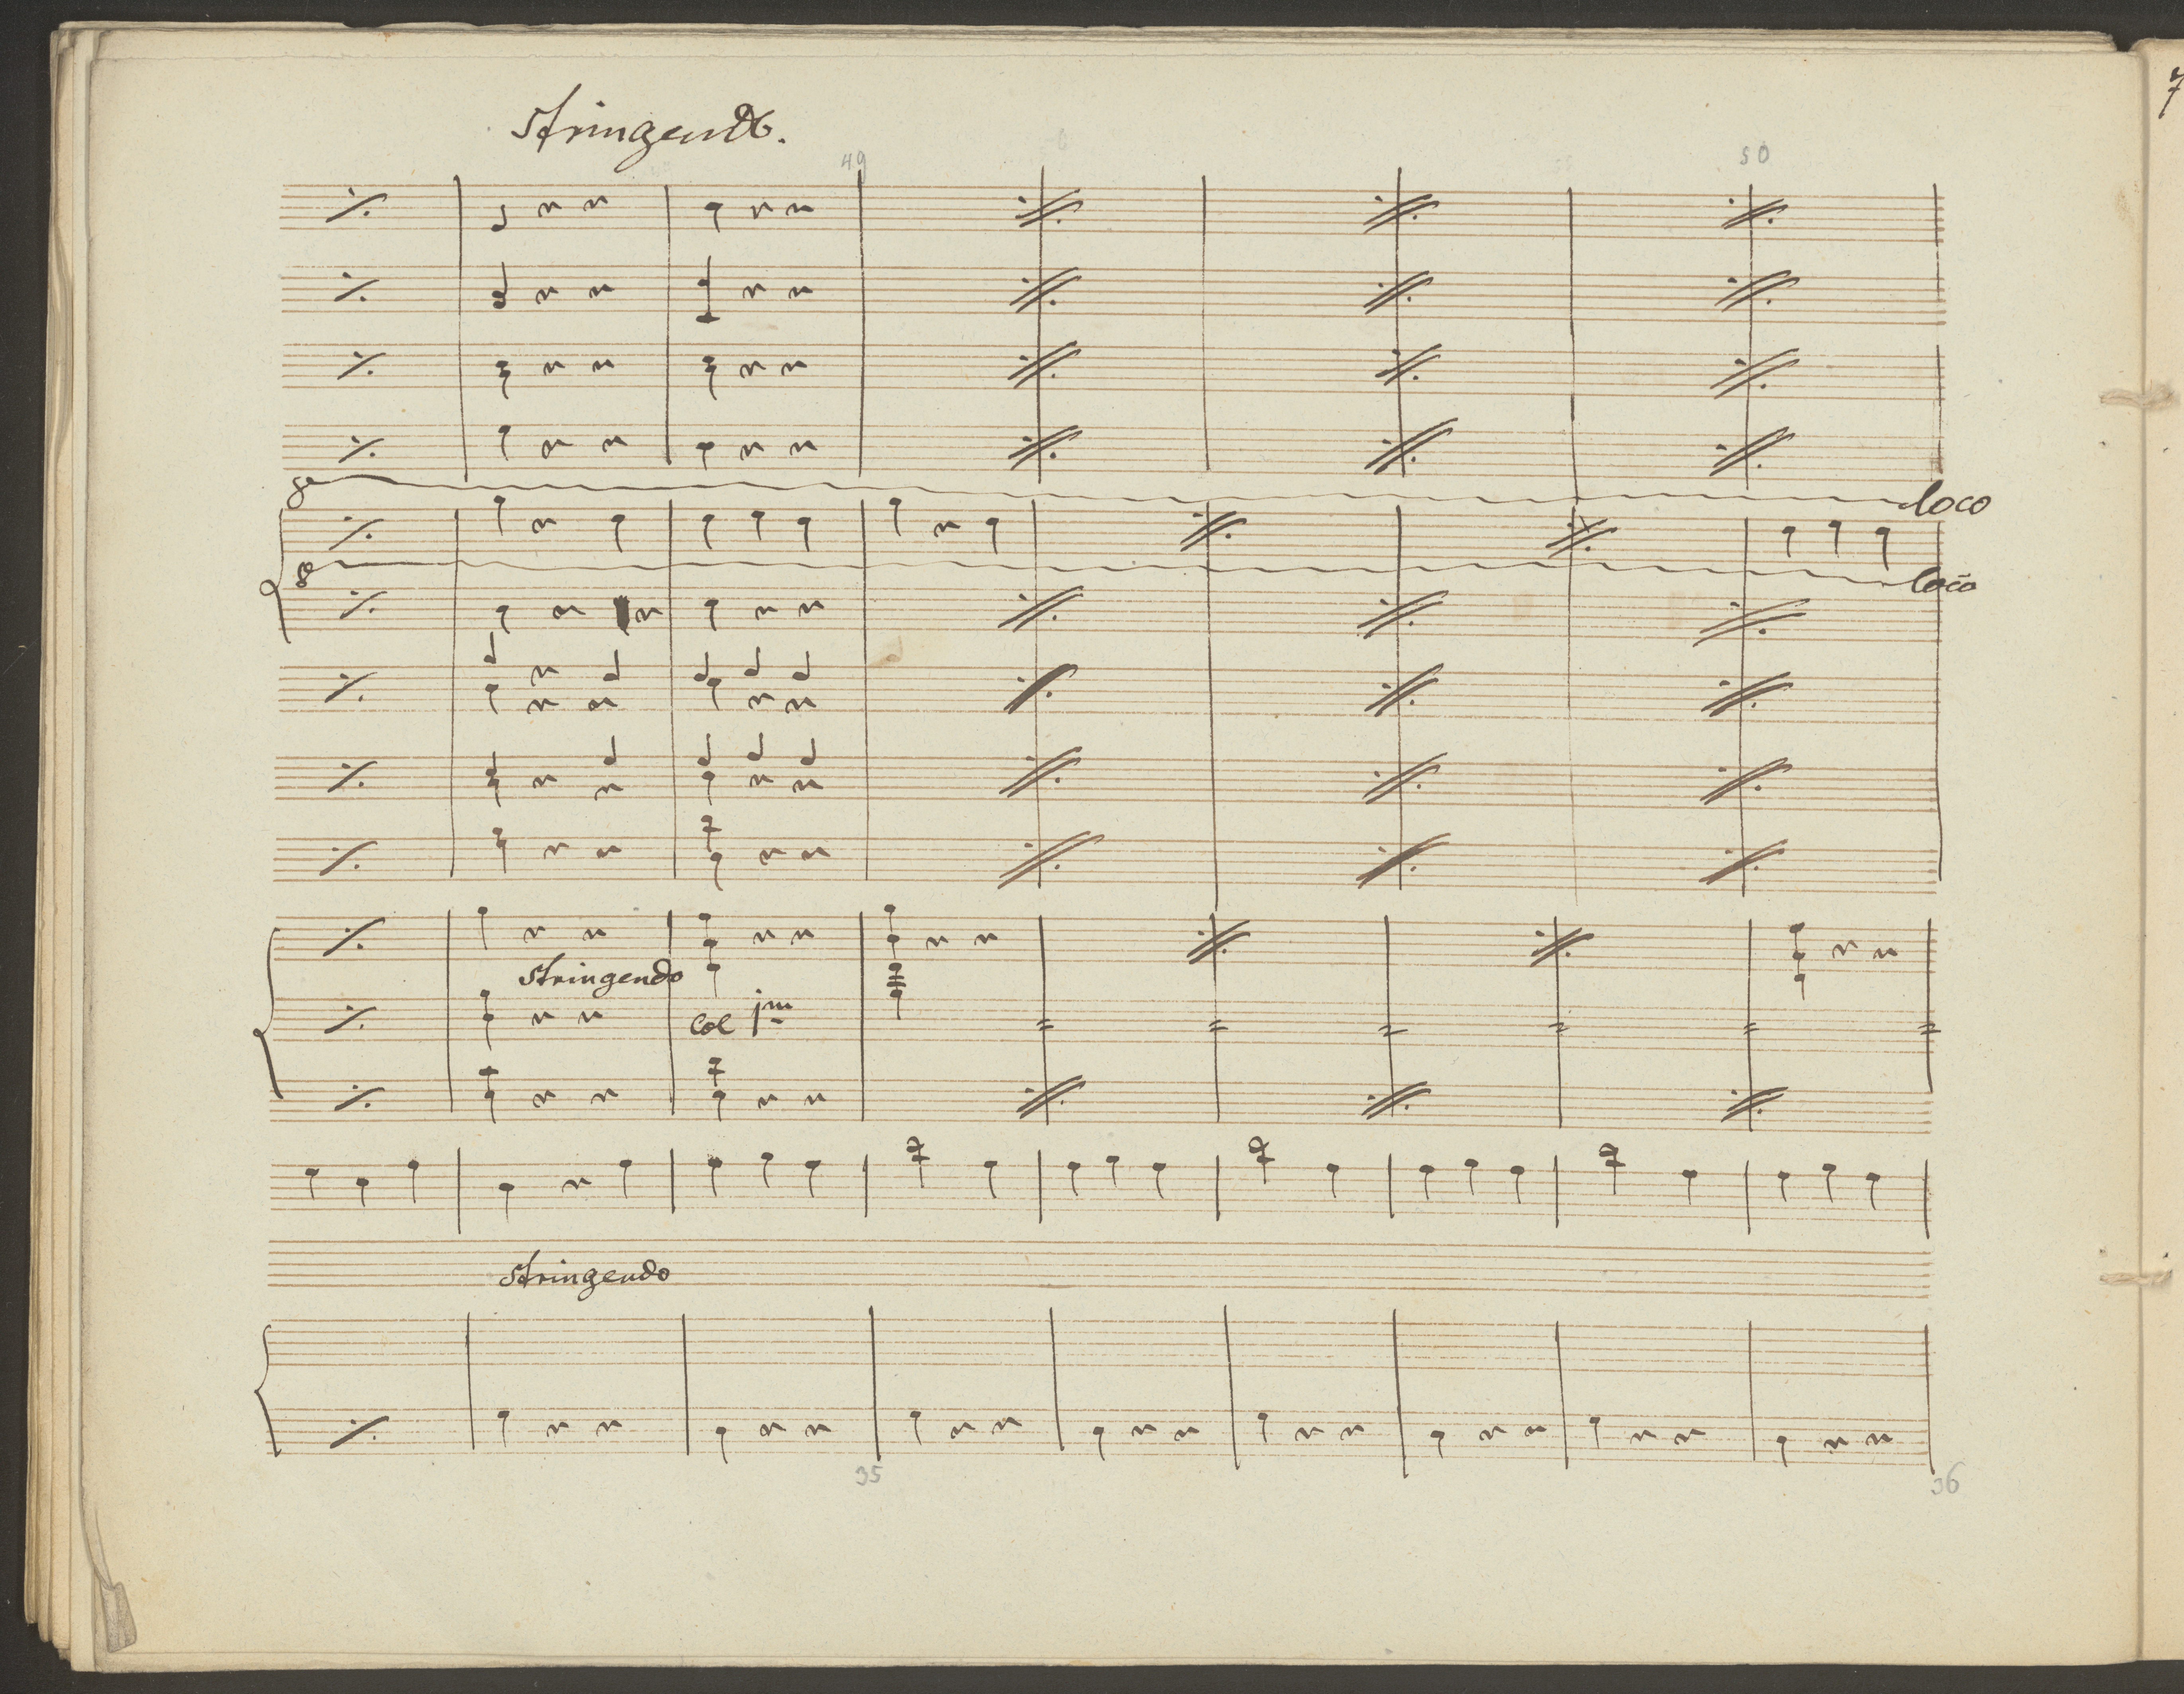 stringendo.
49 50
8a loco
8 loco
stringendo
Col 1mo
stringendo
35 36
7